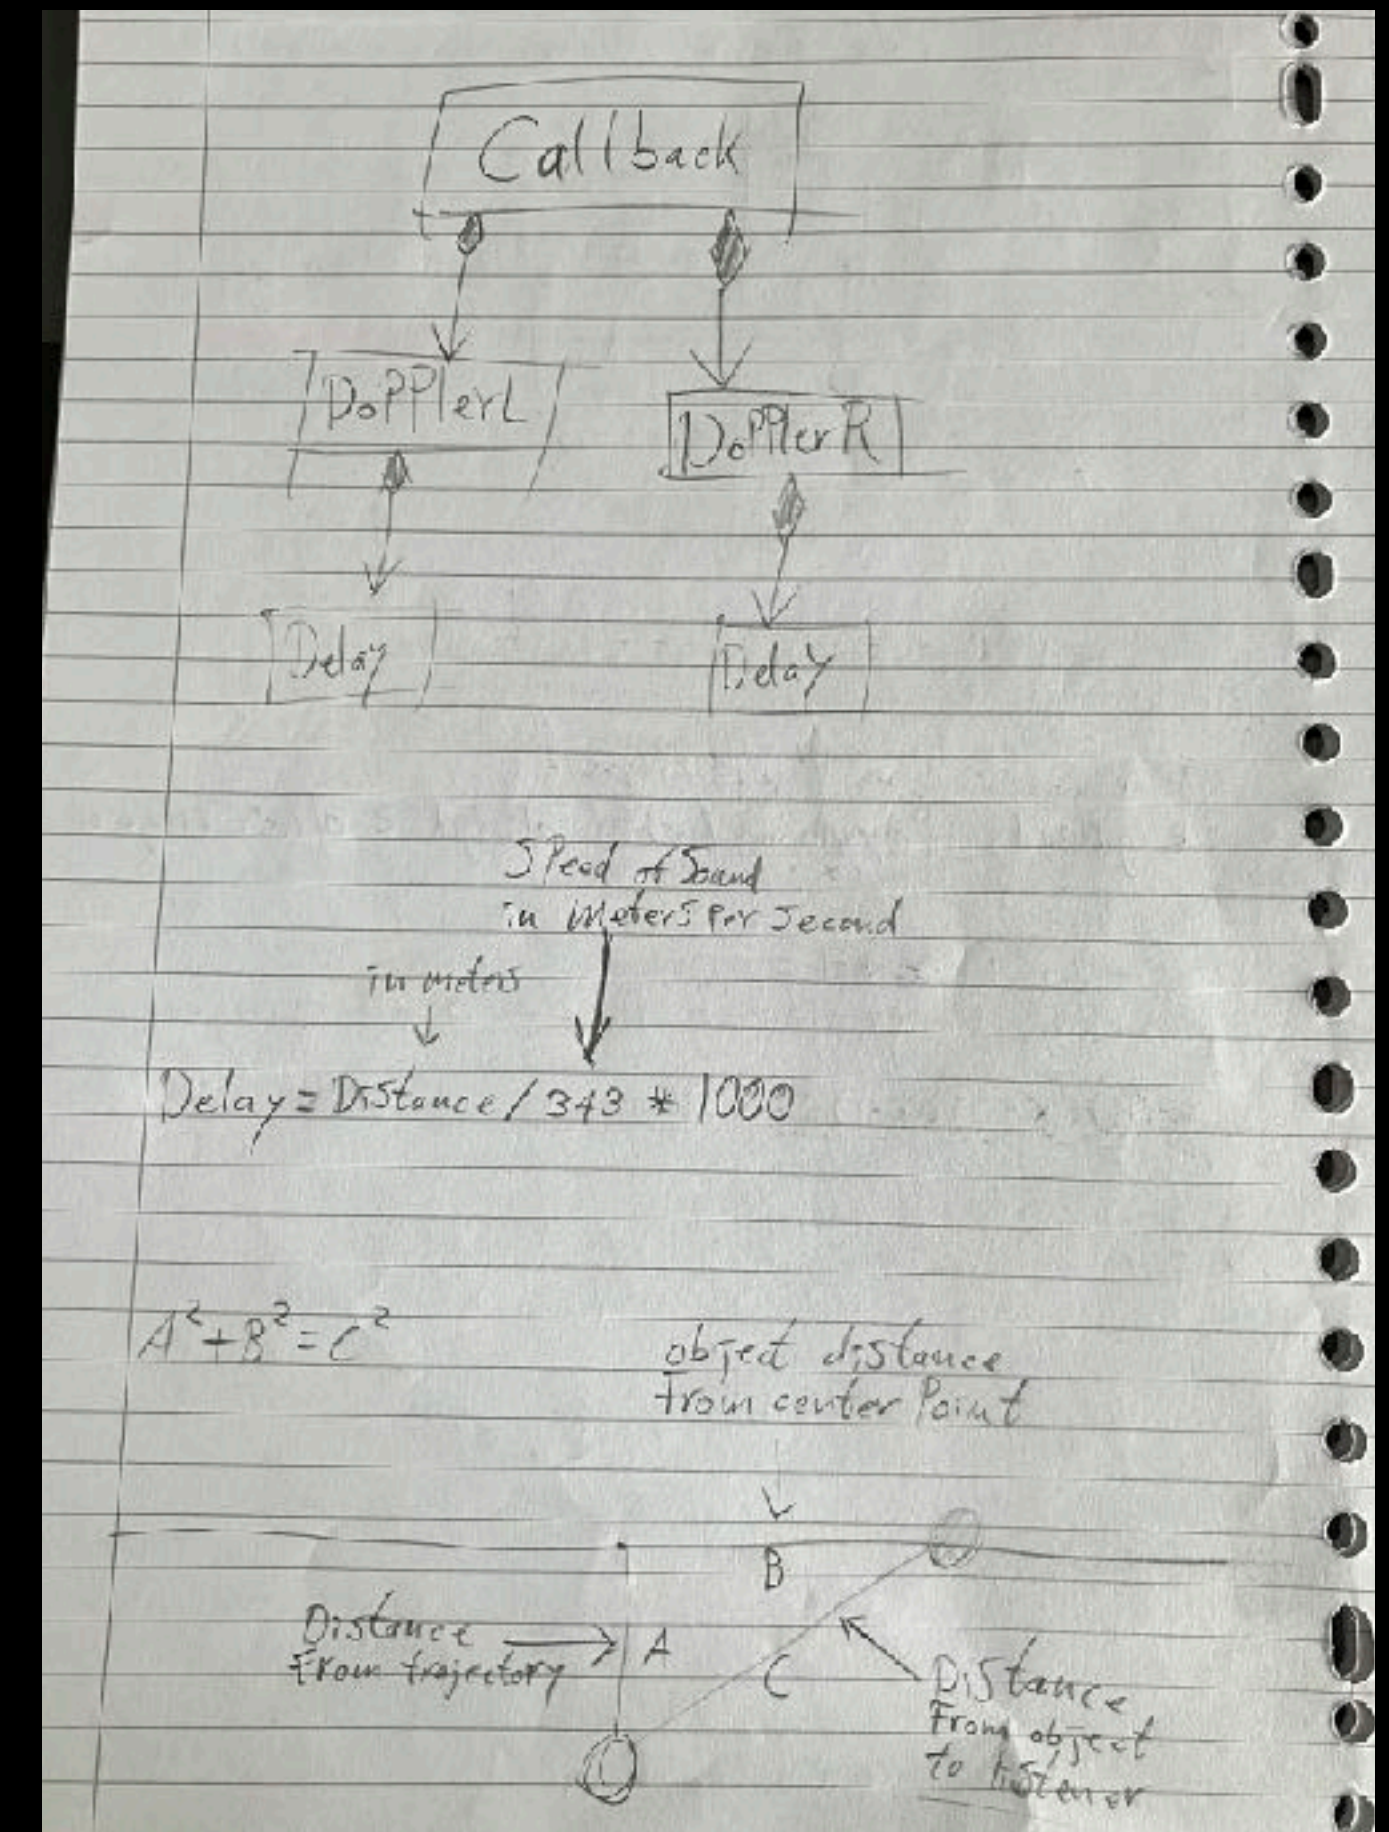 Callback
DopplerL
Doppler R
Delay
Delay
Speed of Sound
in meters per second
in meters
Delay = Distance / 343 * 1000
A² + B² = C²
object distance
from center Point
B
Distance
From trajectory
A
C
Distance
From object
to listener